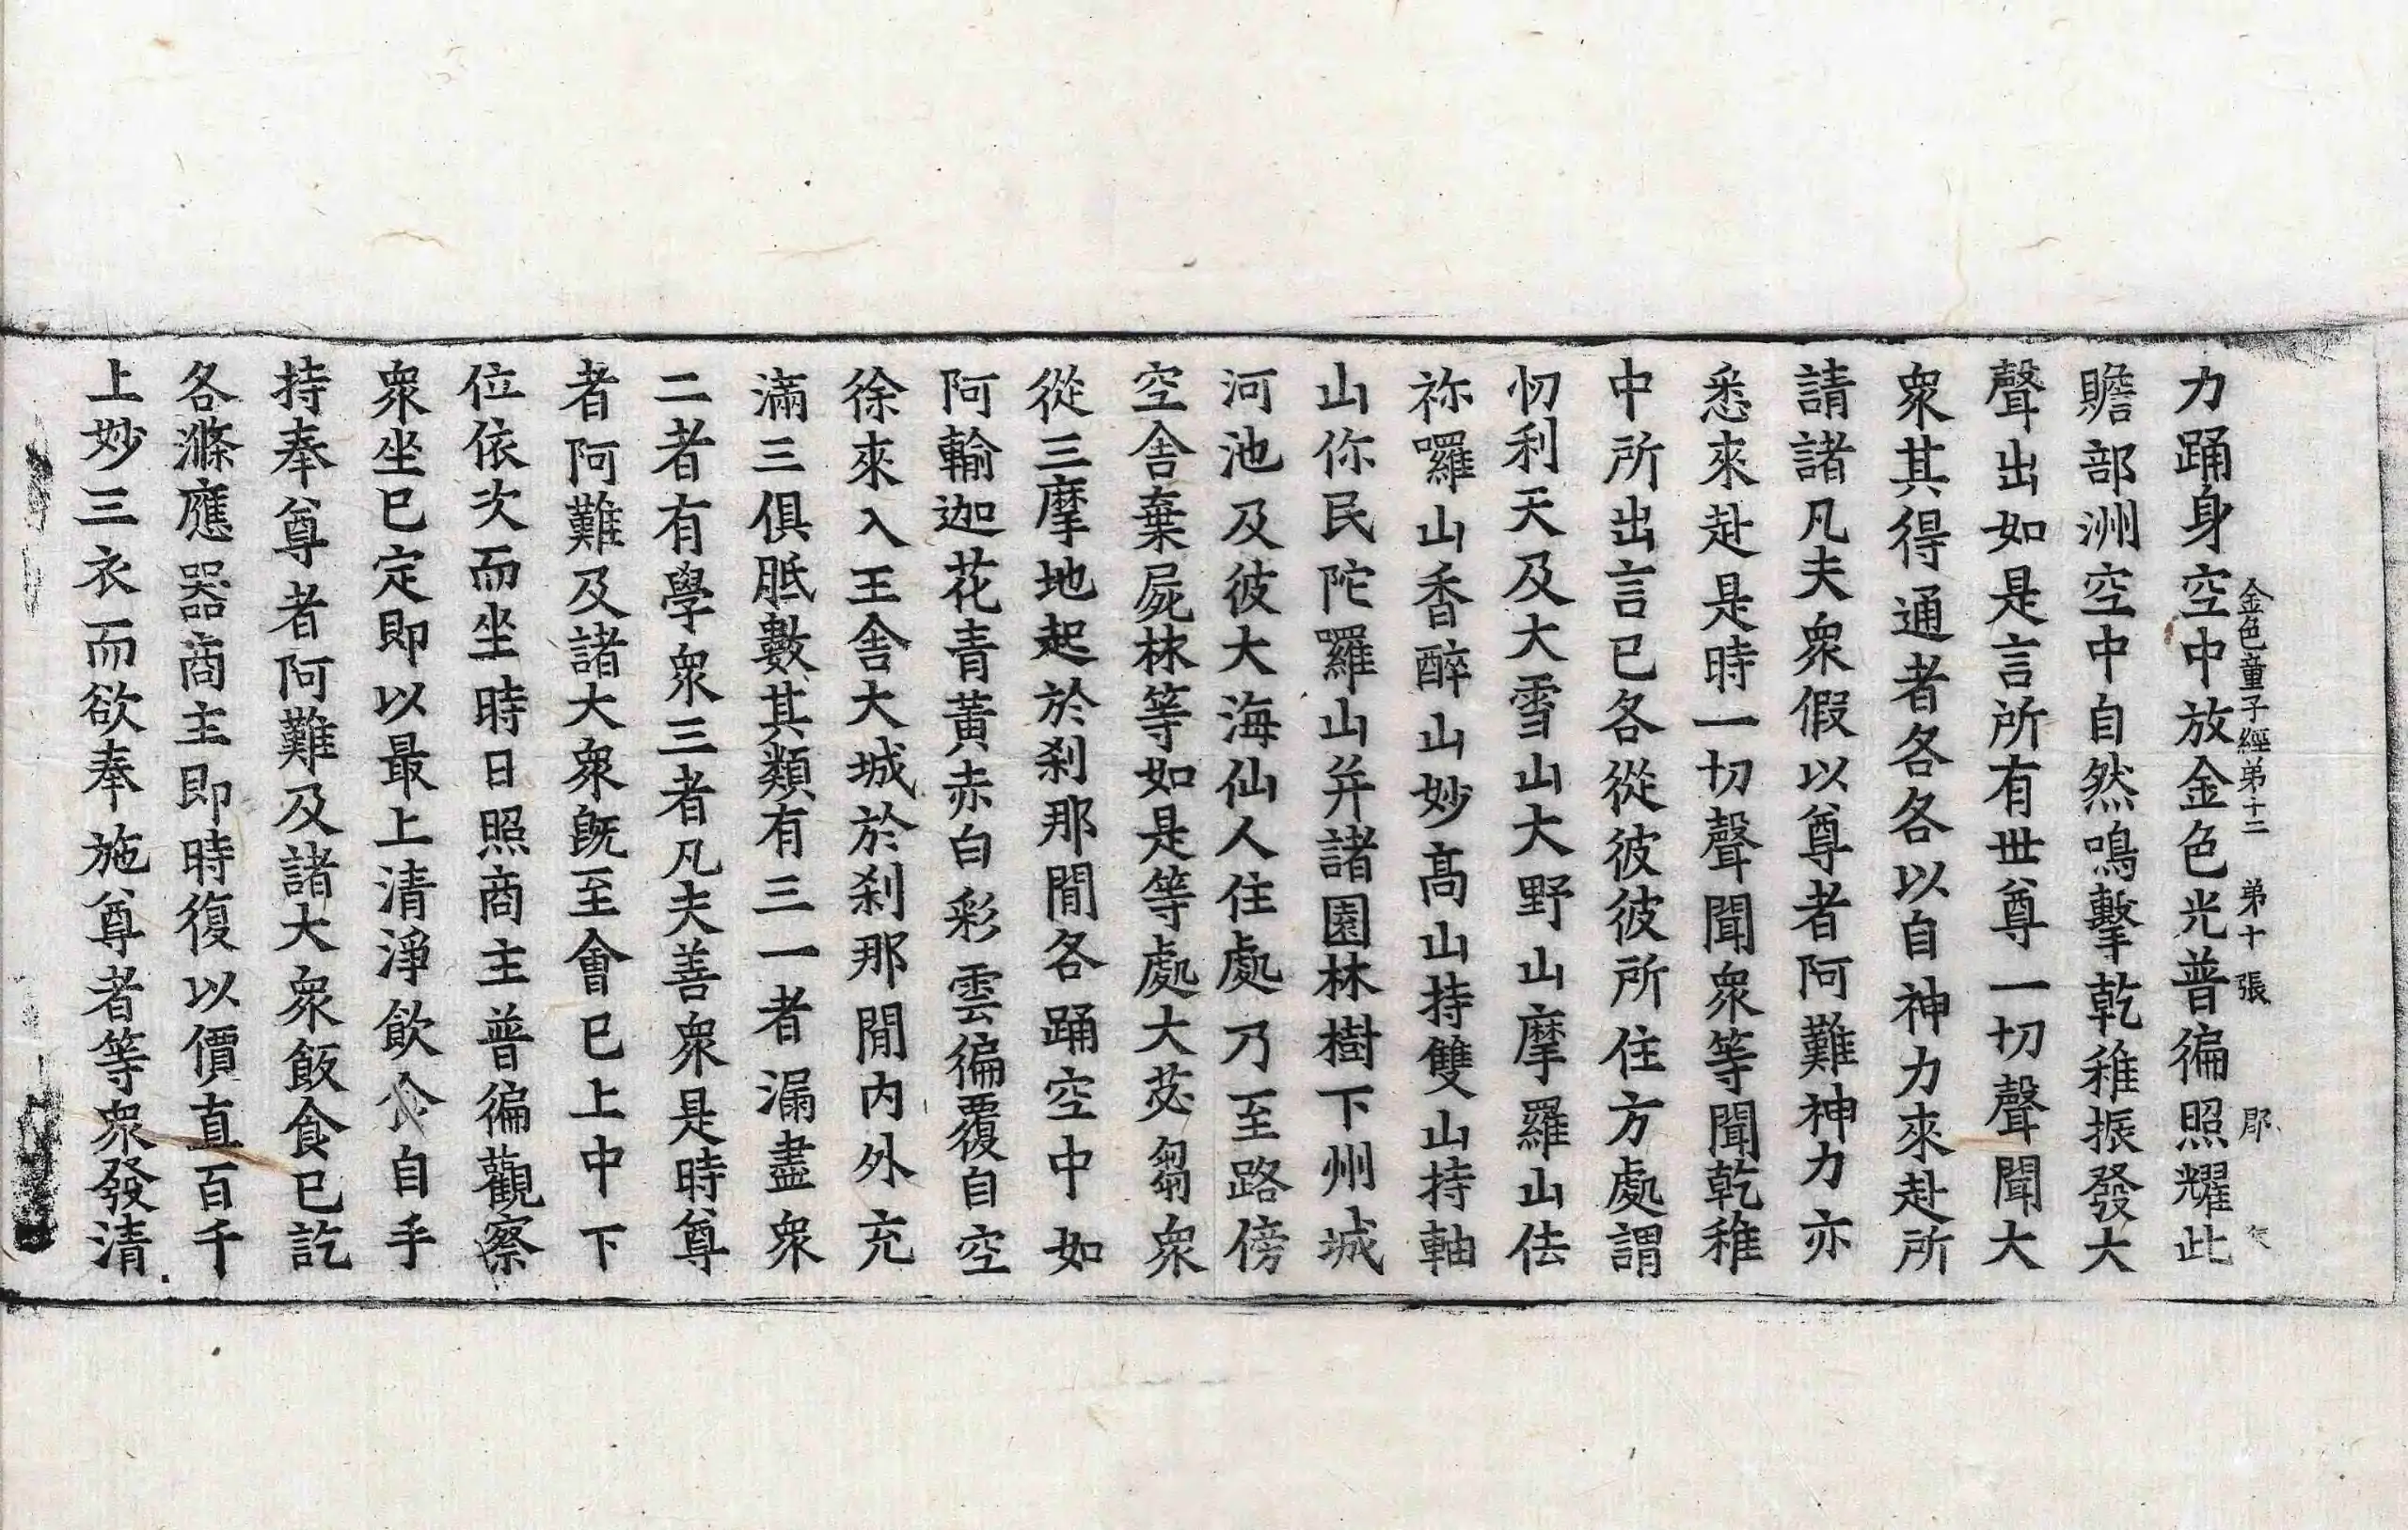 金色童子經第十二 第十張 郡
力踊身空中放金色光普徧照耀此
贍部洲空中自然鳴擊乾稚振發大
聲出如是言所有世尊一切聲聞大
衆其得通者各各以自神力來赴所
請諸凡夫衆假以尊者阿難神力亦
悉來赴是時一切聲聞衆等聞乾稚
中所出言已各從彼彼所住方處謂
忉利天及大雪山大野山摩羅山佉
祢囉山香醉山妙高山持雙山持軸
山你民陀囉山并諸園林樹下州城
河池及彼大海仙人住處乃至路傍
空舍棄屍林等如是等處大苾芻衆
從三摩地起於刹那閒各踊空中如
阿輸迦花青黃赤白彩雲徧覆自空
徐來入王舍大城於刹那閒内外充
滿三俱胝數其類有三一者漏盡衆
二者有學衆三者凡夫善衆是時尊
者阿難及諸大衆旣至會已上中下
位依次而坐時日照商主普徧觀察
衆坐已定即以最上清淨飲食自手
持奉尊者阿難及諸大衆飯食已訖
各滌應器商主即時復以價直百千
上妙三衣而欲奉施尊者等衆發清